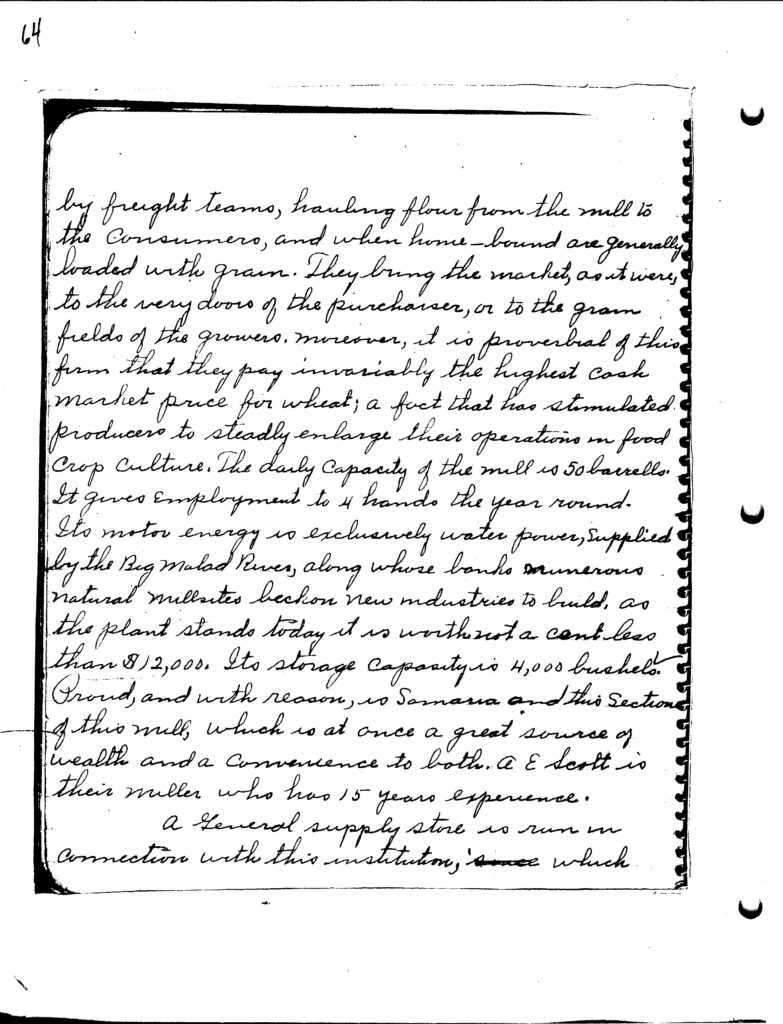 64
by freight teams, hauling flour from the mill to
the Consumers, and when home-bound are generally
loaded with grain. They bring the market, as it were,
to the very doors of the purchaser, or to the grain
fields of the growers. moreover, it is proverbial of this
firm that they pay invariably the highest Cash
market price for wheat; a fact that has stimulated
producers to steadly enlarge their operations in food
Crop Culture. The daily Capacity of the mill is 50 barrells.
It gives Employment to 4 hands the year round.
Its motor energy is exclusively water power, Supplied
by the Big Malad River, along whose banks numerous
natural millsites beckon new industries to build. as
the plant stands today it is worth not a cent less
than $12,000. Its storage Capasity is 4,000 bushels.
Proud, and with reason, is Samaria and this Section
of this mill, which is at once a great source of
wealth and a Convenience to both. A E Scott is
their miller who has 15 years experience.
A General supply store is run in
Connection with this institution, since which